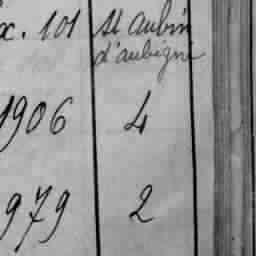 x. 101 St Aubin
d'aubigné
1906 4
979 2